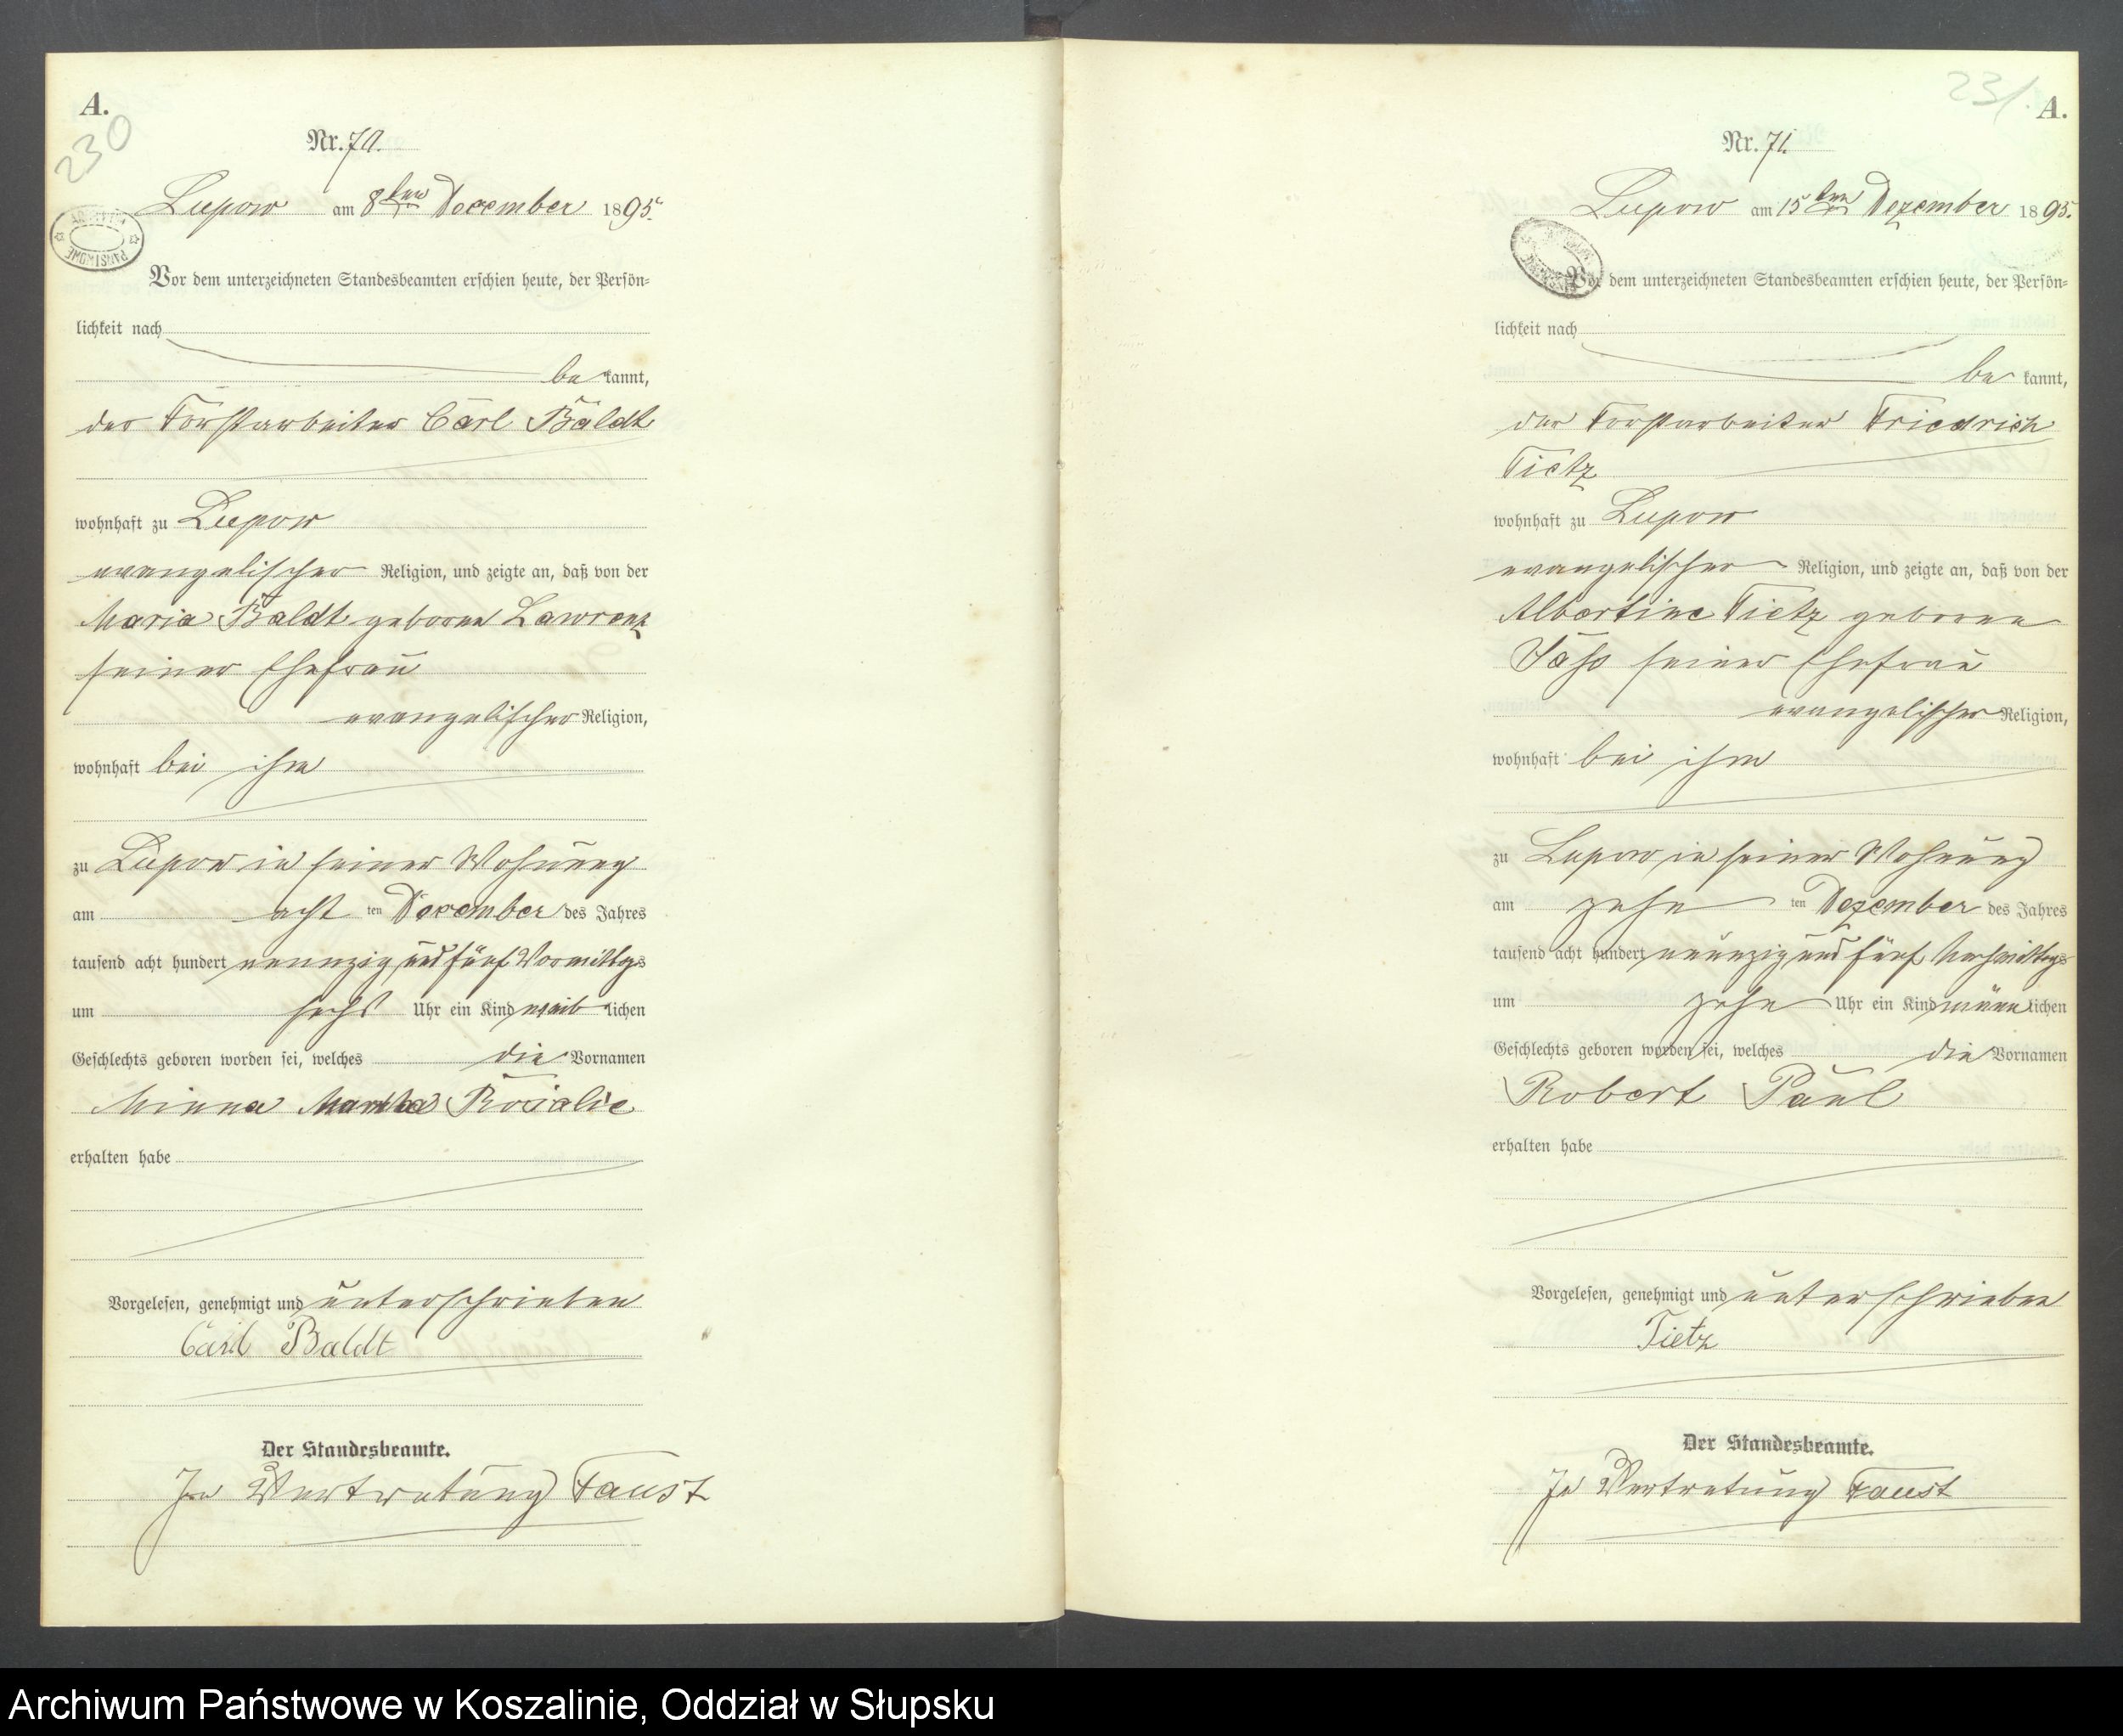 A.
230
Nr. 70.
Lupow am 8ten December 1895.
Vor dem unterzeichneten Standesbeamten erschien heute, der Persön-
lichkeit nach
bekannt,
der Forstarbeiter Carl Baldt
wohnhaft zu Lupow
evangelischer Religion, und zeigte an, daß von der
Maria Baldt geboren Lawrenz
seiner Ehefrau
evangelischer Religion,
wohnhaft bei ihm
zu Lupow in seiner Wohnung
am acht ten December des Jahres
tausend acht hundert neunzig und fünf Vormittags
um sechs Uhr ein Kind weiblichen
Geschlechts geboren worden sei, welches die Vornamen
Minna Martha Rosalie
erhalten habe
Vorgelesen, genehmigt und unterschrieben
Carl Baldt
Der Standesbeamte.
In Vertretung Faust
231.
A.
Nr. 71.
Lupow am 15ten Dezember 1895.
Vor dem unterzeichneten Standesbeamten erschien heute, der Persön-
lichkeit nach
bekannt,
der Forstarbeiter Friedrich
Tietz
wohnhaft zu Lupow
evangelischer Religion, und zeigte an, daß von der
Albertine Tietz geboren
seiner Ehefrau
evangelischer Religion,
wohnhaft bei ihm
zu Lupow in seiner Wohnung
am zehn ten Dezember des Jahres
tausend acht hundert neunzig und fünf Nachmittags
um zehn Uhr ein Kind männlichen
Geschlechts geboren worden sei, welches die Vornamen
Robert Paul
erhalten habe
Vorgelesen, genehmigt und unterschrieben
Tietz
Der Standesbeamte.
In Vertretung Faust
Archiwum Państwowe w Koszalinie, Oddział w Słupsku